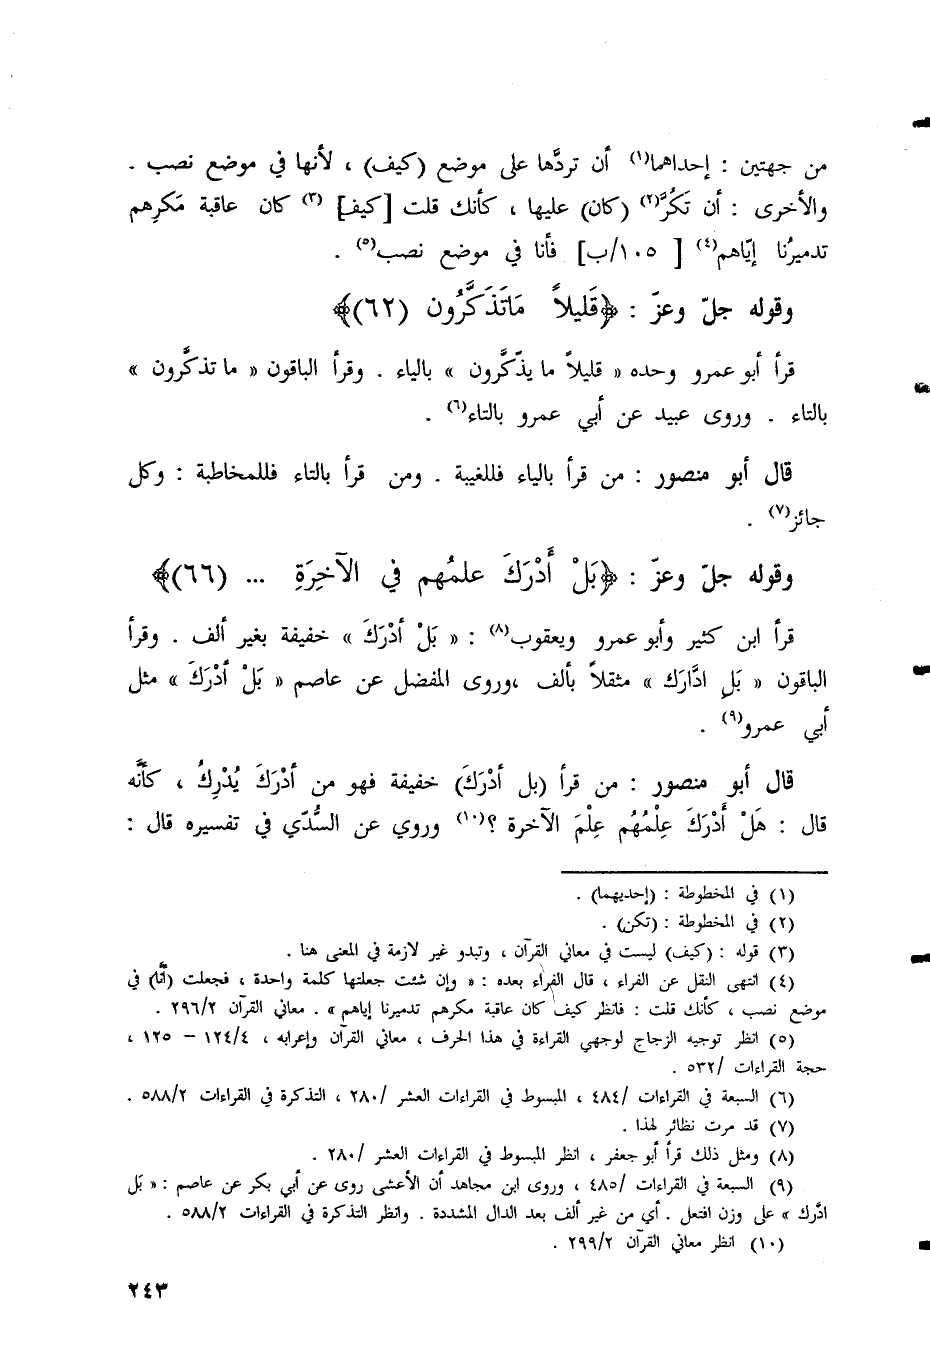 من جهتين : إحداهما(١) أن تردَّها على موضع (كيف) ، لأنها في موضع نصب .
والأخرى : أن تَكُرَّ(٢) (كان) عليها ، كأنك قلت [كيف] (٣) كان عاقبة مَكرِهم
تدميرُنا إيّاهم(٤) [ ١٠٥/ب] فأنا في موضع نصب(٥) .
وقوله جلّ وعزّ : ﴿قَليلاً مَاتَذَكَّرُون (٦٢)﴾
قرأ أبو عمرو وحده « قليلاً ما يذّكّرون » بالياء . وقرأ الباقون « ما تذكَّرون »
بالتاء . وروى عبيد عن أبي عمرو بالتاء(٦) .
قال أبو منصور : من قرأ بالياء فللغيبة . ومن قرأ بالتاء فللمخاطبة : وكل
جائز(٧) .
وقوله جلّ وعزّ : ﴿بَلْ أَدْرَكَ علمُهم في الآخِرَةِ ... (٦٦)﴾
قرأ ابن كثير وأبو عمرو ويعقوب(٨) : « بَلْ أدْرَكَ » خفيفة بغير ألف . وقرأ
الباقون « بَلِ ادَّارَك » مثقلاً بألف ،وروى المفضل عن عاصم « بَلْ أدْرَكَ » مثل
أبي عمرو(٩) .
قال أبو منصور : من قرأ (بل أدْرَكَ) خفيفة فهو من أدْرَكَ يُدْرِكُ ، كأنَّه
قال : هَلْ أَدْرَكَ عِلْمُهُم عِلْمَ الآخرة ؟(١٠) وروي عن السُّدّي في تفسيره قال :
(١) في المخطوطة : (إحديهما) .
(٢) في المخطوطة : (تكن) .
(٣) قوله : (كيف) ليست في معاني القرآن ، وتبدو غير لازمة في المعنى هنا .
(٤) انتهى النقل عن الفراء ، قال الفراء بعده : « وإن شئت جعلتها كلمة واحدة ، فجعلت (أنّا) في
موضع نصب ، كأنك قلت : فانظر كيف كان عاقبة مكرهم تدميرنا إياهم » . معاني القرآن ٢٩٦/٢ .
(٥) انظر توجيه الزجاج لوجهي القراءة في هذا الحرف ، معاني القرآن وإعرابه ، ١٢٤/٤ – ١٢٥ ،
حجة القراءات /٥٣٢ .
(٦) السبعة في القراءات /٤٨٤ ، المبسوط في القراءات العشر /٢٨٠ ، التذكرة في القراءات ٥٨٨/٢ .
(٧) قد مرت نظائر لهذا .
(٨) ومثل ذلك قرأ أبو جعفر ، انظر المبسوط في القراءات العشر /٢٨٠ .
(٩) السبعة في القراءات /٤٨٥ ، وروى ابن مجاهد أن الأعشى روى عن أبي بكر عن عاصم : « بَل
ادَّرك » على وزن افتعل . أي من غير ألف بعد الدال المشددة . وانظر التذكرة في القراءات ٥٨٨/٢ .
(١٠) انظر معاني القرآن ٢٩٩/٢ .
٢٤٣